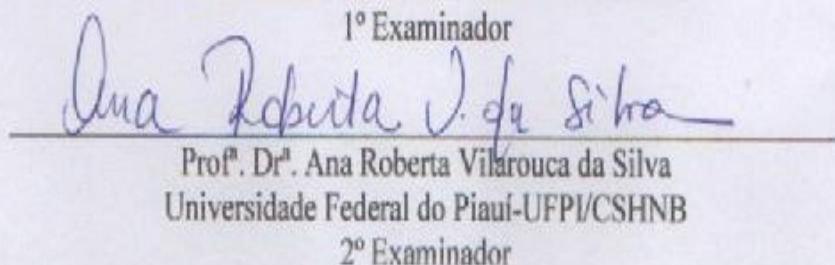 1º Examinador
Ana Roberta V. da Silva
Profª. Drª. Ana Roberta Vilarouca da Silva
Universidade Federal do Piauí-UFPI/CSHNB
2º Examinador